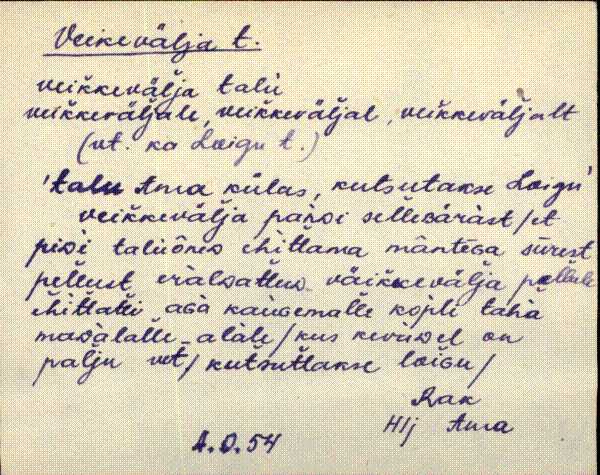 Veikevälja t.
veikkevälja talu
veikkeväljale, veikkeväljal, veikkeväljalt
(vt. ka Loigu t.)
'talu Ama külas, kutsutakse Loigu'
veikkevälja pańdi sellebäräst / et
pidi talu ehittama
pellust väikkevälja
ehittatti aga kaugemalle kopli taha
madalalle alale / kus kevädel on
palju vet / kutsuttakse loigu /
Rak
Hlj Ama
A.O.54